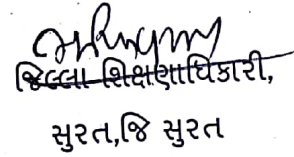 જિલ્લા શિક્ષણાધિકારી,
સુરત,જિ સુરત